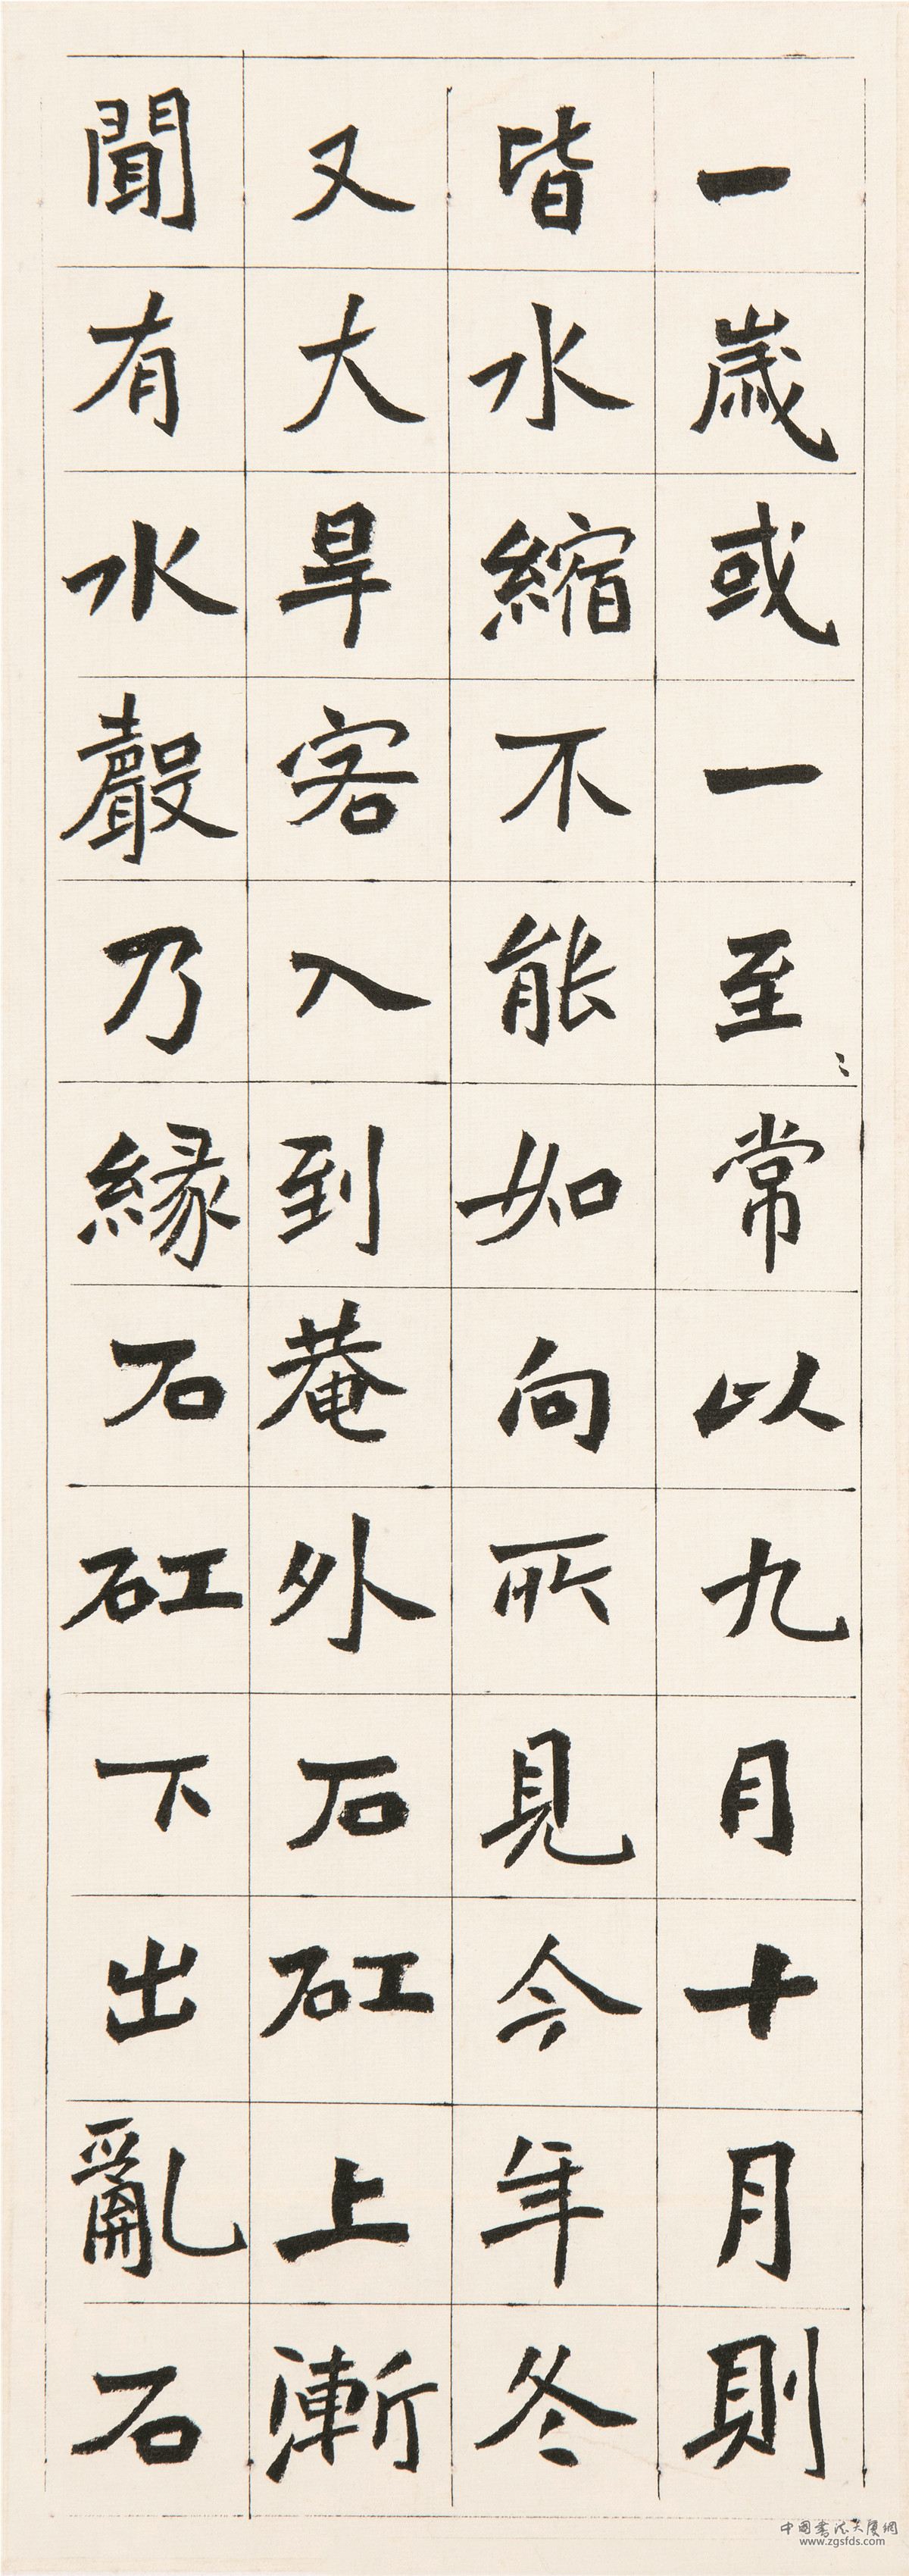 一歲或一至常以九月十月則
皆水縮不能如向所見今年冬
又大旱客入到菴外石矼上漸
聞有水聲乃緣石矼下出亂石
中国书法大厦網
www.zgsfds.com